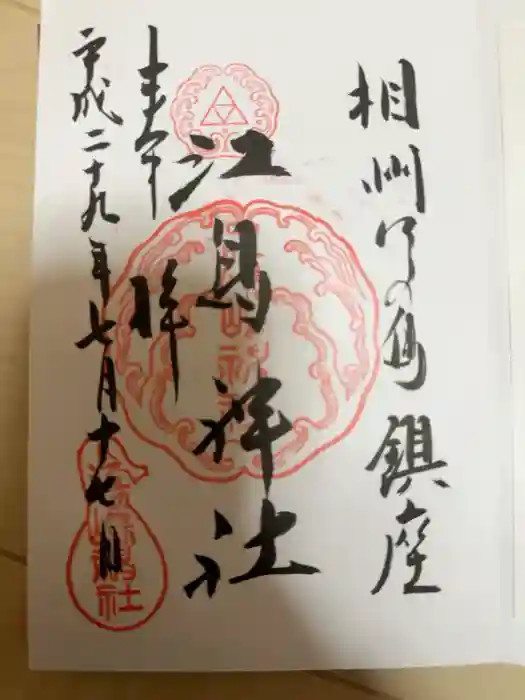 相州江の島鎮座
江島神社
奉拝
平成二十九年七月十七日